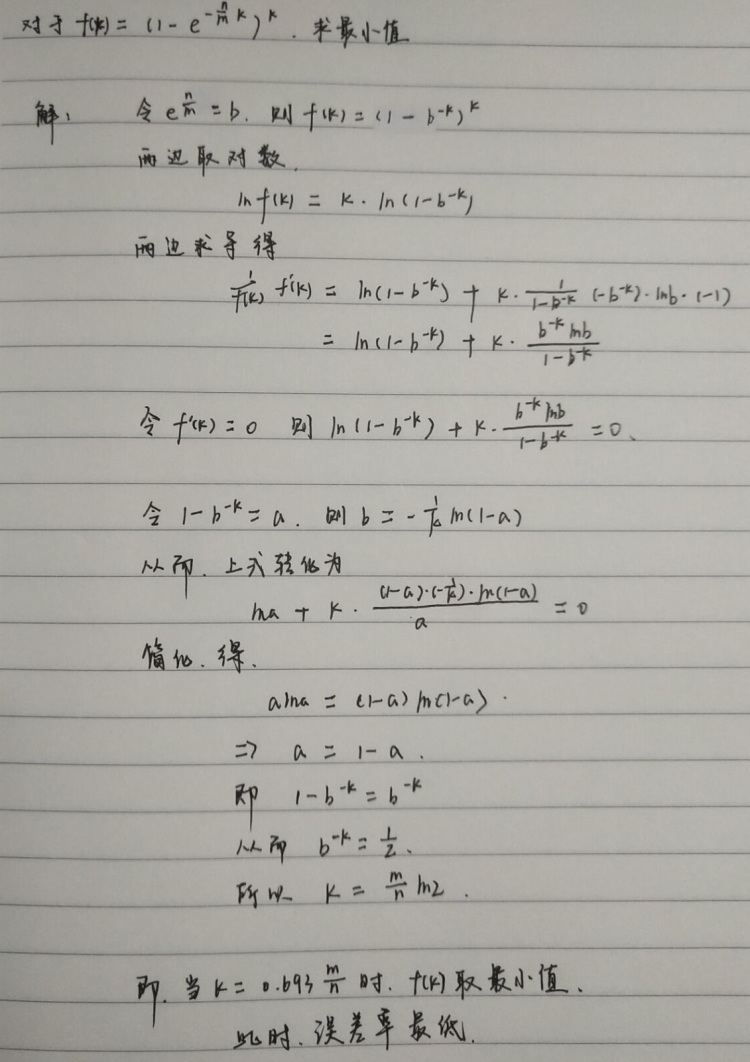 对于 f(k) = (1 - e^{-\frac{n}{m}k})^k. 求最小值
解: 令 e^{\frac{n}{m}} = b. 则 f(k) = (1 - b^{-k})^k
两边取对数.
ln f(k) = k · ln(1-b^{-k})
两边求导得
\frac{1}{f(k)} f'(k) = ln(1-b^{-k}) + k · \frac{1}{1-b^{-k}} (-b^{-k}) · lnb · (-1)
= ln(1-b^{-k}) + k · \frac{b^{-k} lnb}{1-b^{-k}}
令 f'(k) = 0 则 ln(1-b^{-k}) + k · \frac{b^{-k} lnb}{1-b^{-k}} = 0.
令 1-b^{-k} = a. 则 b = -\frac{1}{k} ln(1-a)
从而. 上式转化为
lna + k · \frac{(1-a)·(-\frac{1}{k})·ln(1-a)}{a} = 0
简化. 得.
alna = (1-a) ln(1-a).
=> a = 1-a.
即 1-b^{-k} = b^{-k}
从而 b^{-k} = \frac{1}{2}.
所以 k = \frac{m}{n} ln2.
即. 当 k = 0.693 \frac{m}{n} 时. f(k) 取最小值.
此时. 误差率最低.